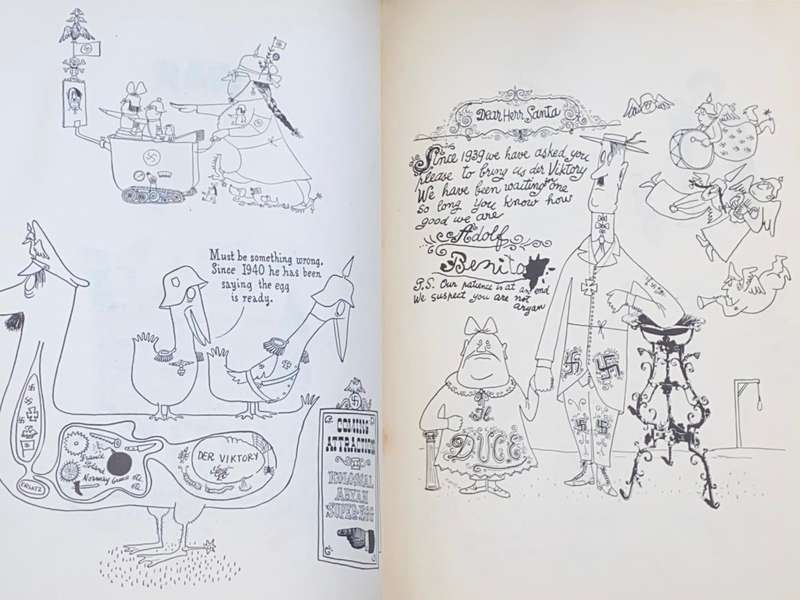 Must be something wrong.
Since 1940 he has been
saying the egg
is ready.
DER VIKTORY
France
Poland
Norway Greece etc.
etc.
ERSATZ
COMING
ATTRACTION
KOLOSSAL
ARYAN
SUPER-EGG
Dear Herr Santa
Since 1939 we have asked you
please to bring us der Viktory
We have been waiting one
so long you know how
good we are
Adolf
Benito
P.S. Our patience is at an end
We suspect you are not
aryan
Il
DUCE